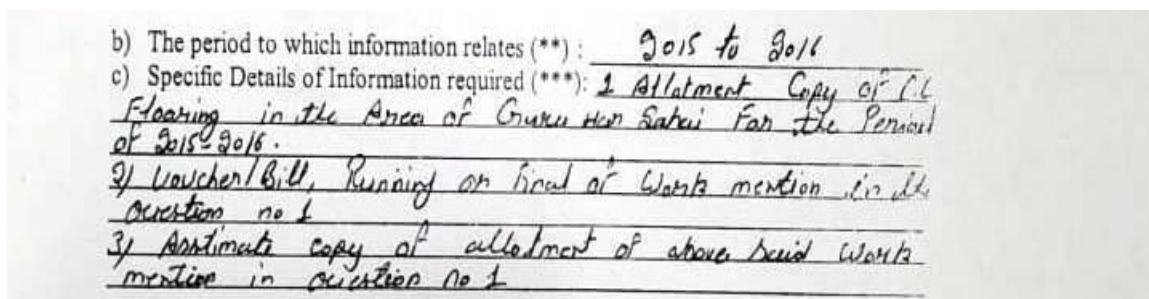 b) The period to which information relates (**) : 2015 to 2016
c) Specific Details of Information required (***): 1 Allotment Copy of CC
Flooring in the Area of Guru Har Sahai For the Period
of 2015-2016.
2) Voucher/Bill, Running or final of Works mention in the
Question no 1
3) Asstimate copy of allotment of above said Works
mention in question no 1